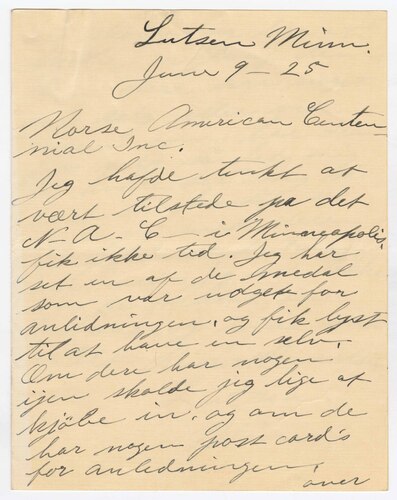 Lutsen Minn.
June 9-25
Norse American Centen-
nial Inc.
Jeg hafde tenkt at
vært tilstede pa det
N-A-C- i Minneapolis,
fik ikke tid. Jeg har
set en af de medal
som var udget for
anlidningen, og fik lyst
til at have en selv.
Om dere har nogen
ijen skolde jeg lige at
kjöbe in, og om de
har nogen post card's
for anledningen.
over